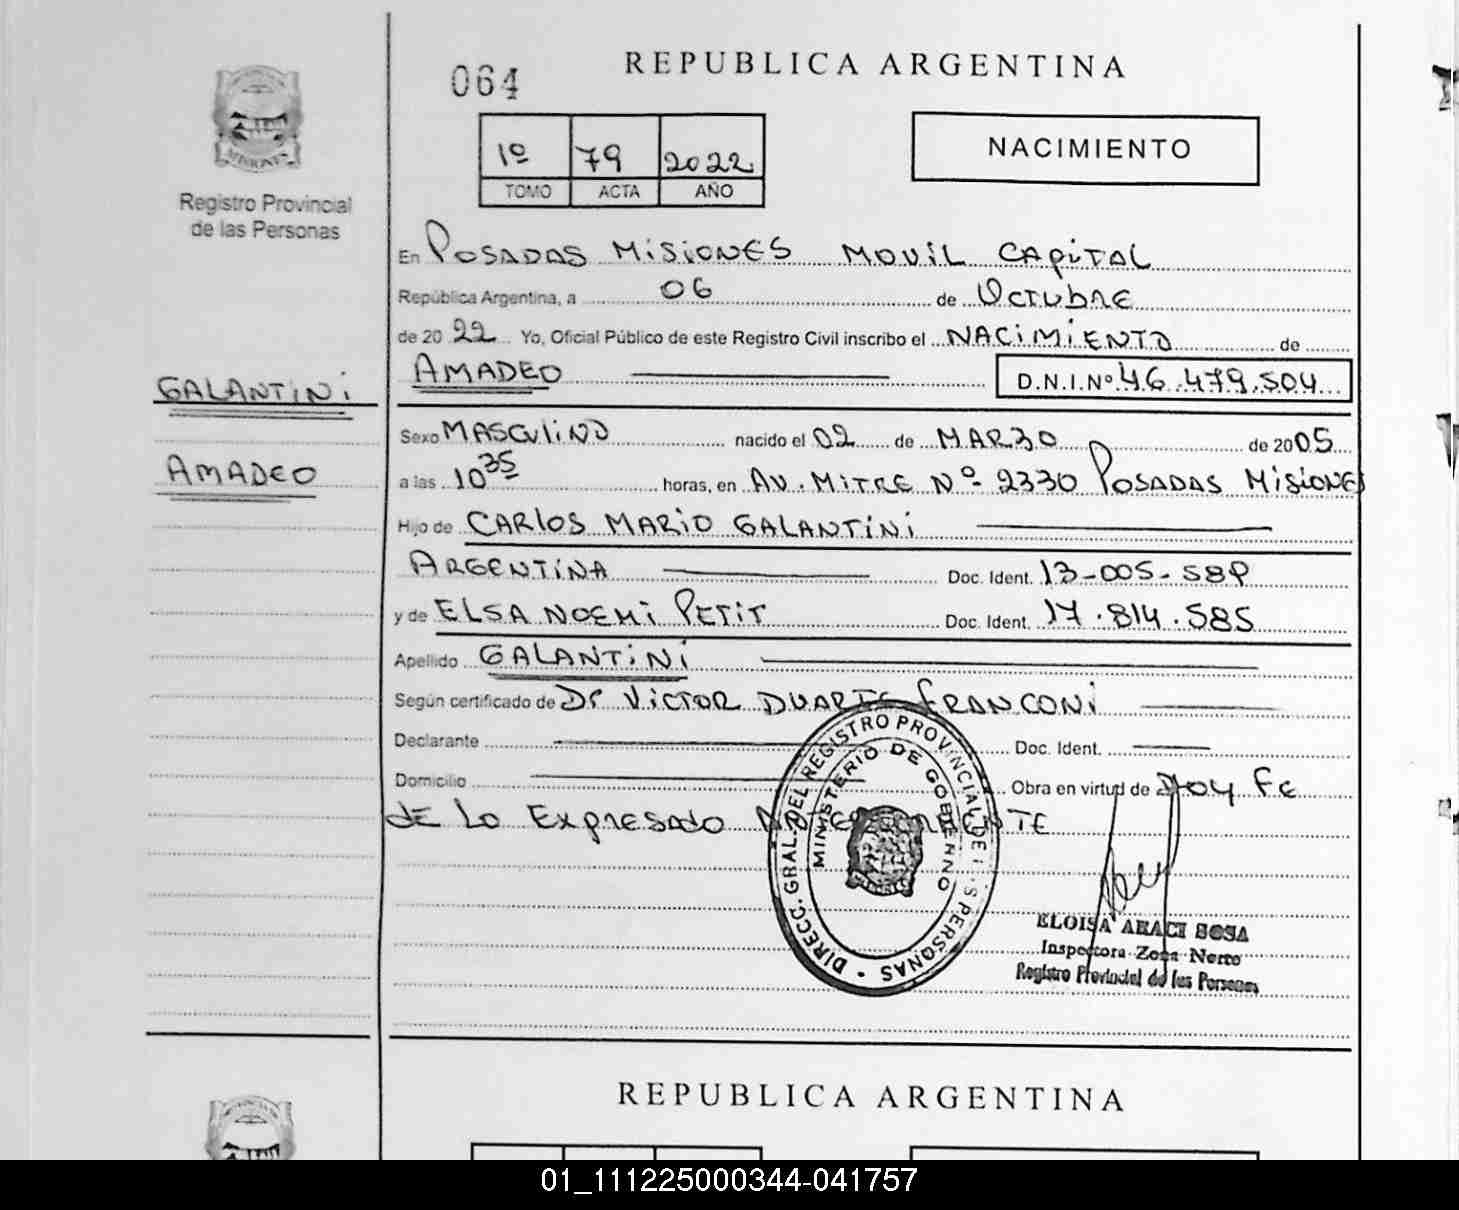 REPUBLICA ARGENTINA
064
NACIMIENTO
1º 79 2022
TOMO ACTA AÑO
MISIONES
Registro Provincial
de las Personas
En POSADAS MISIONES MOVIL CAPITAL
República Argentina, a 06 de OCTUBRE
de 2022 Yo, Oficial Público de este Registro Civil inscribo el NACIMIENTO de
AMADEO D.N.I.Nº 46.479.504
GALANTINI
AMADEO
Sexo MASCULINO nacido el 02 de MARZO de 2005
a las 10 35 horas, en AV. MITRE Nº 2330 POSADAS MISIONES
Hijo de CARLOS MARIO GALANTINI
ARGENTINA Doc. Ident. 13-005-589
y de ELSA NOEMI PETIT Doc. Ident. 17.814.585
Apellido GALANTINI
Según certificado de Dr VICTOR DUARTE FRANCONI
Declarante Doc. Ident.
Domicilio Obra en virtud de DOY FE
DE LO EXPRESADO ANTERIORMENTE
DIRECC. GRAL. DEL REGISTRO PROVINCIAL DE LAS PERSONAS
MINISTERIO DE GOBIERNO
ELOISA ARACI SOSA
Inspectora Zona Norte
Registro Provincial de las Personas
REPUBLICA ARGENTINA
01_111225000344-041757